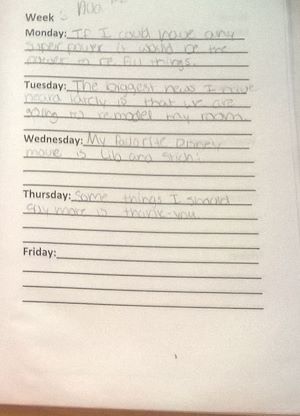 Week 3
Monday: If I could have any
super power it would be the
power to re fill things.
Tuesday: The biggest news I have
heard lately is that we are
going to remodel my room.
Wednesday: My favorite Disney
movie is Lilo and Stich.
Thursday: Some things I should
say more is thank-you
Friday: